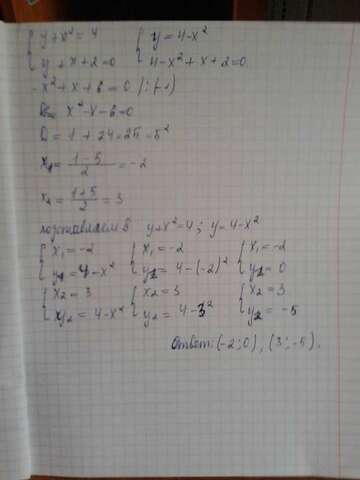 { y + x² = 4 { y = 4 - x²
{ y + x + 2 = 0 { 4 - x² + x + 2 = 0
- x² + x + 6 = 0 | (: (-1)
x² - x - 6 = 0
D = 1 + 24 = 25 = 5²
x₁ = (1 - 5)/2 = -2
x₂ = (1 + 5)/2 = 3
подставляем в y + x² = 4; y = 4 - x²
{ x₁ = -2 { x₁ = -2 { x₁ = -2
{ y₁ = 4 - x² { y₁ = 4 - (-2)² { y₁ = 0
{ x₂ = 3 { x₂ = 3 { x₂ = 3
{ y₂ = 4 - x² { y₂ = 4 - 3² { y₂ = -5
Ответ: (-2; 0), (3; -5).